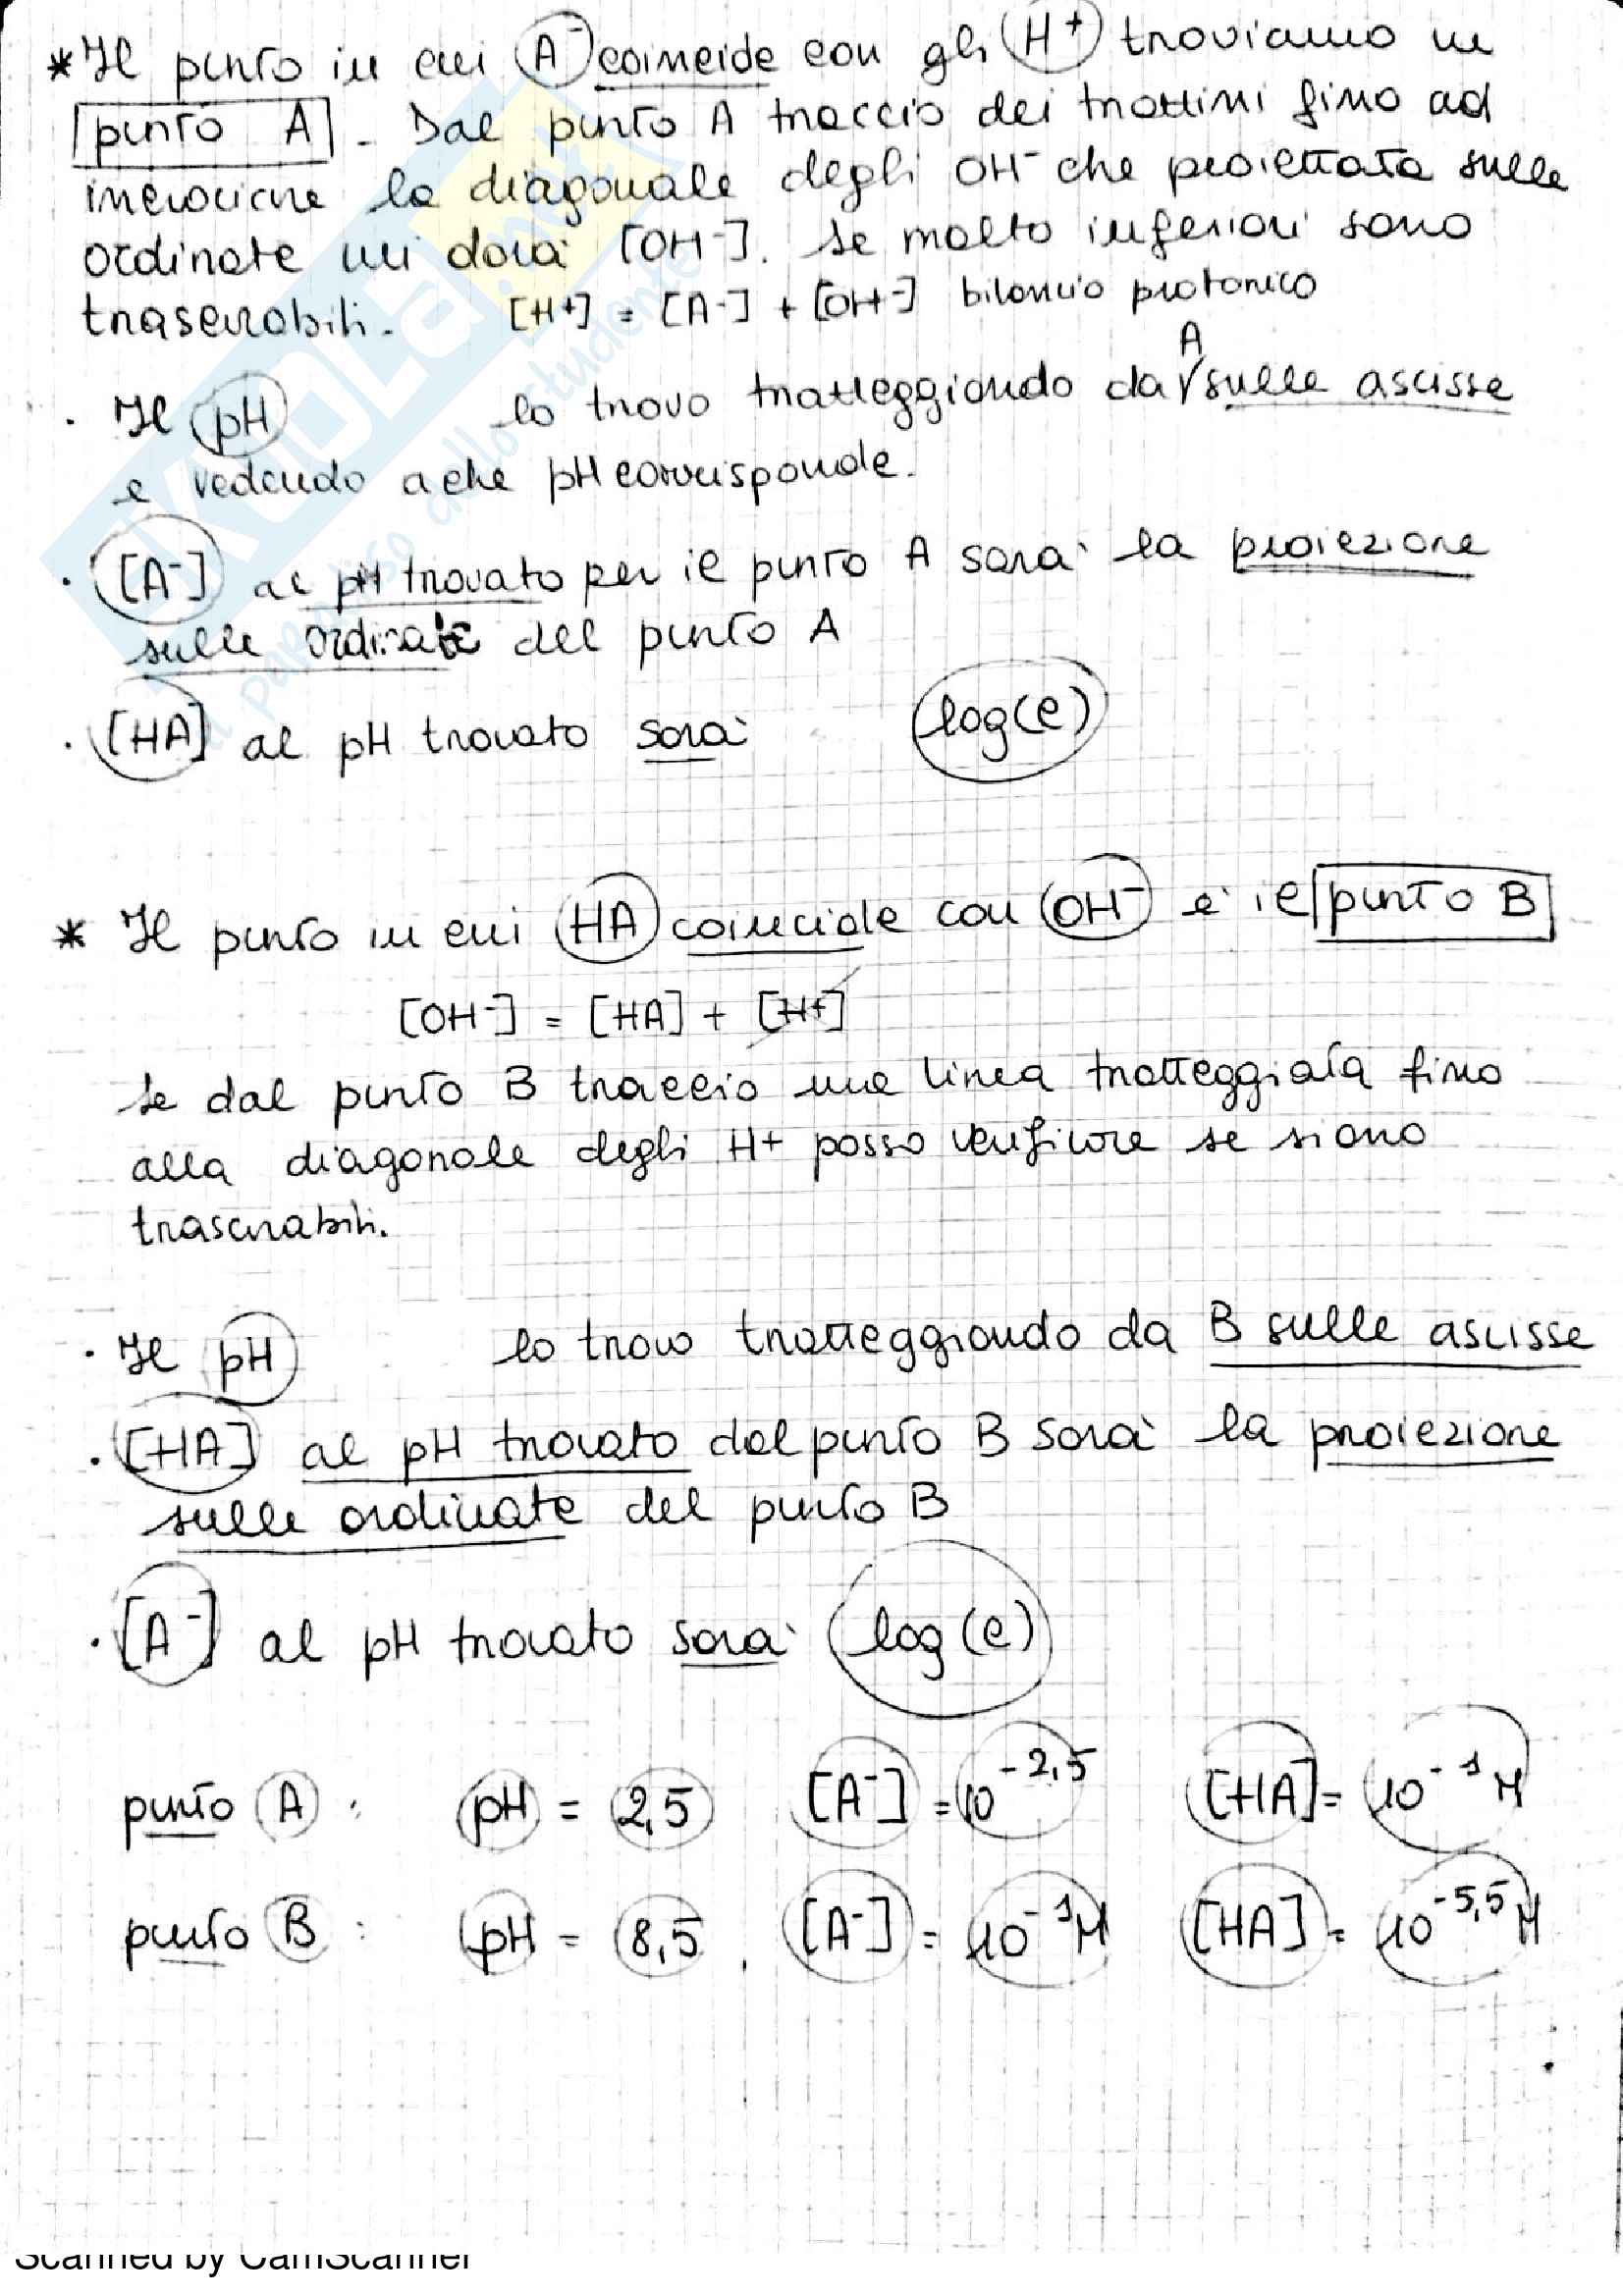 * Il punto in cui A⁻ coincide con gli H⁺ troviamo un
punto A. Dal punto A traccio dei trattini fino ad
incrociare la diagonale degli OH⁻ che proiettata sulle
ordinate mi darà [OH⁻]. Se molto inferiori sono
trascurabili. [H⁺] = [A⁻] + [OH⁻] bilancio protonico
A
· Il pH lo trovo tratteggiando da sulle ascisse
e vedendo a che pH corrisponde.
· [A⁻] al pH trovato per il punto A sarà la proiezione
sulle ordinate del punto A
· [HA] al pH trovato sarà log(c)
* Il punto in cui HA coincide con OH⁻ è il punto B
[OH⁻] = [HA] + [H⁺]
Se dal punto B traccio una linea tratteggiata fino
alla diagonale degli H⁺ posso verificare se siano
trascurabili.
· Il pH lo trovo tratteggiando da B sulle ascisse
· [HA] al pH trovato dal punto B sarà la proiezione
sulle ordinate del punto B
· [A⁻] al pH trovato sarà log(c)
punto A : pH = 2,5 [A⁻] = 10⁻²,⁵ [HA] = 10⁻¹ M
punto B : pH = 8,5 . [A⁻] = 10⁻¹ M [HA] = 10⁻⁵,⁵ M
SKUOLA.net
il paradiso dello studente
Scanned by CamScanner